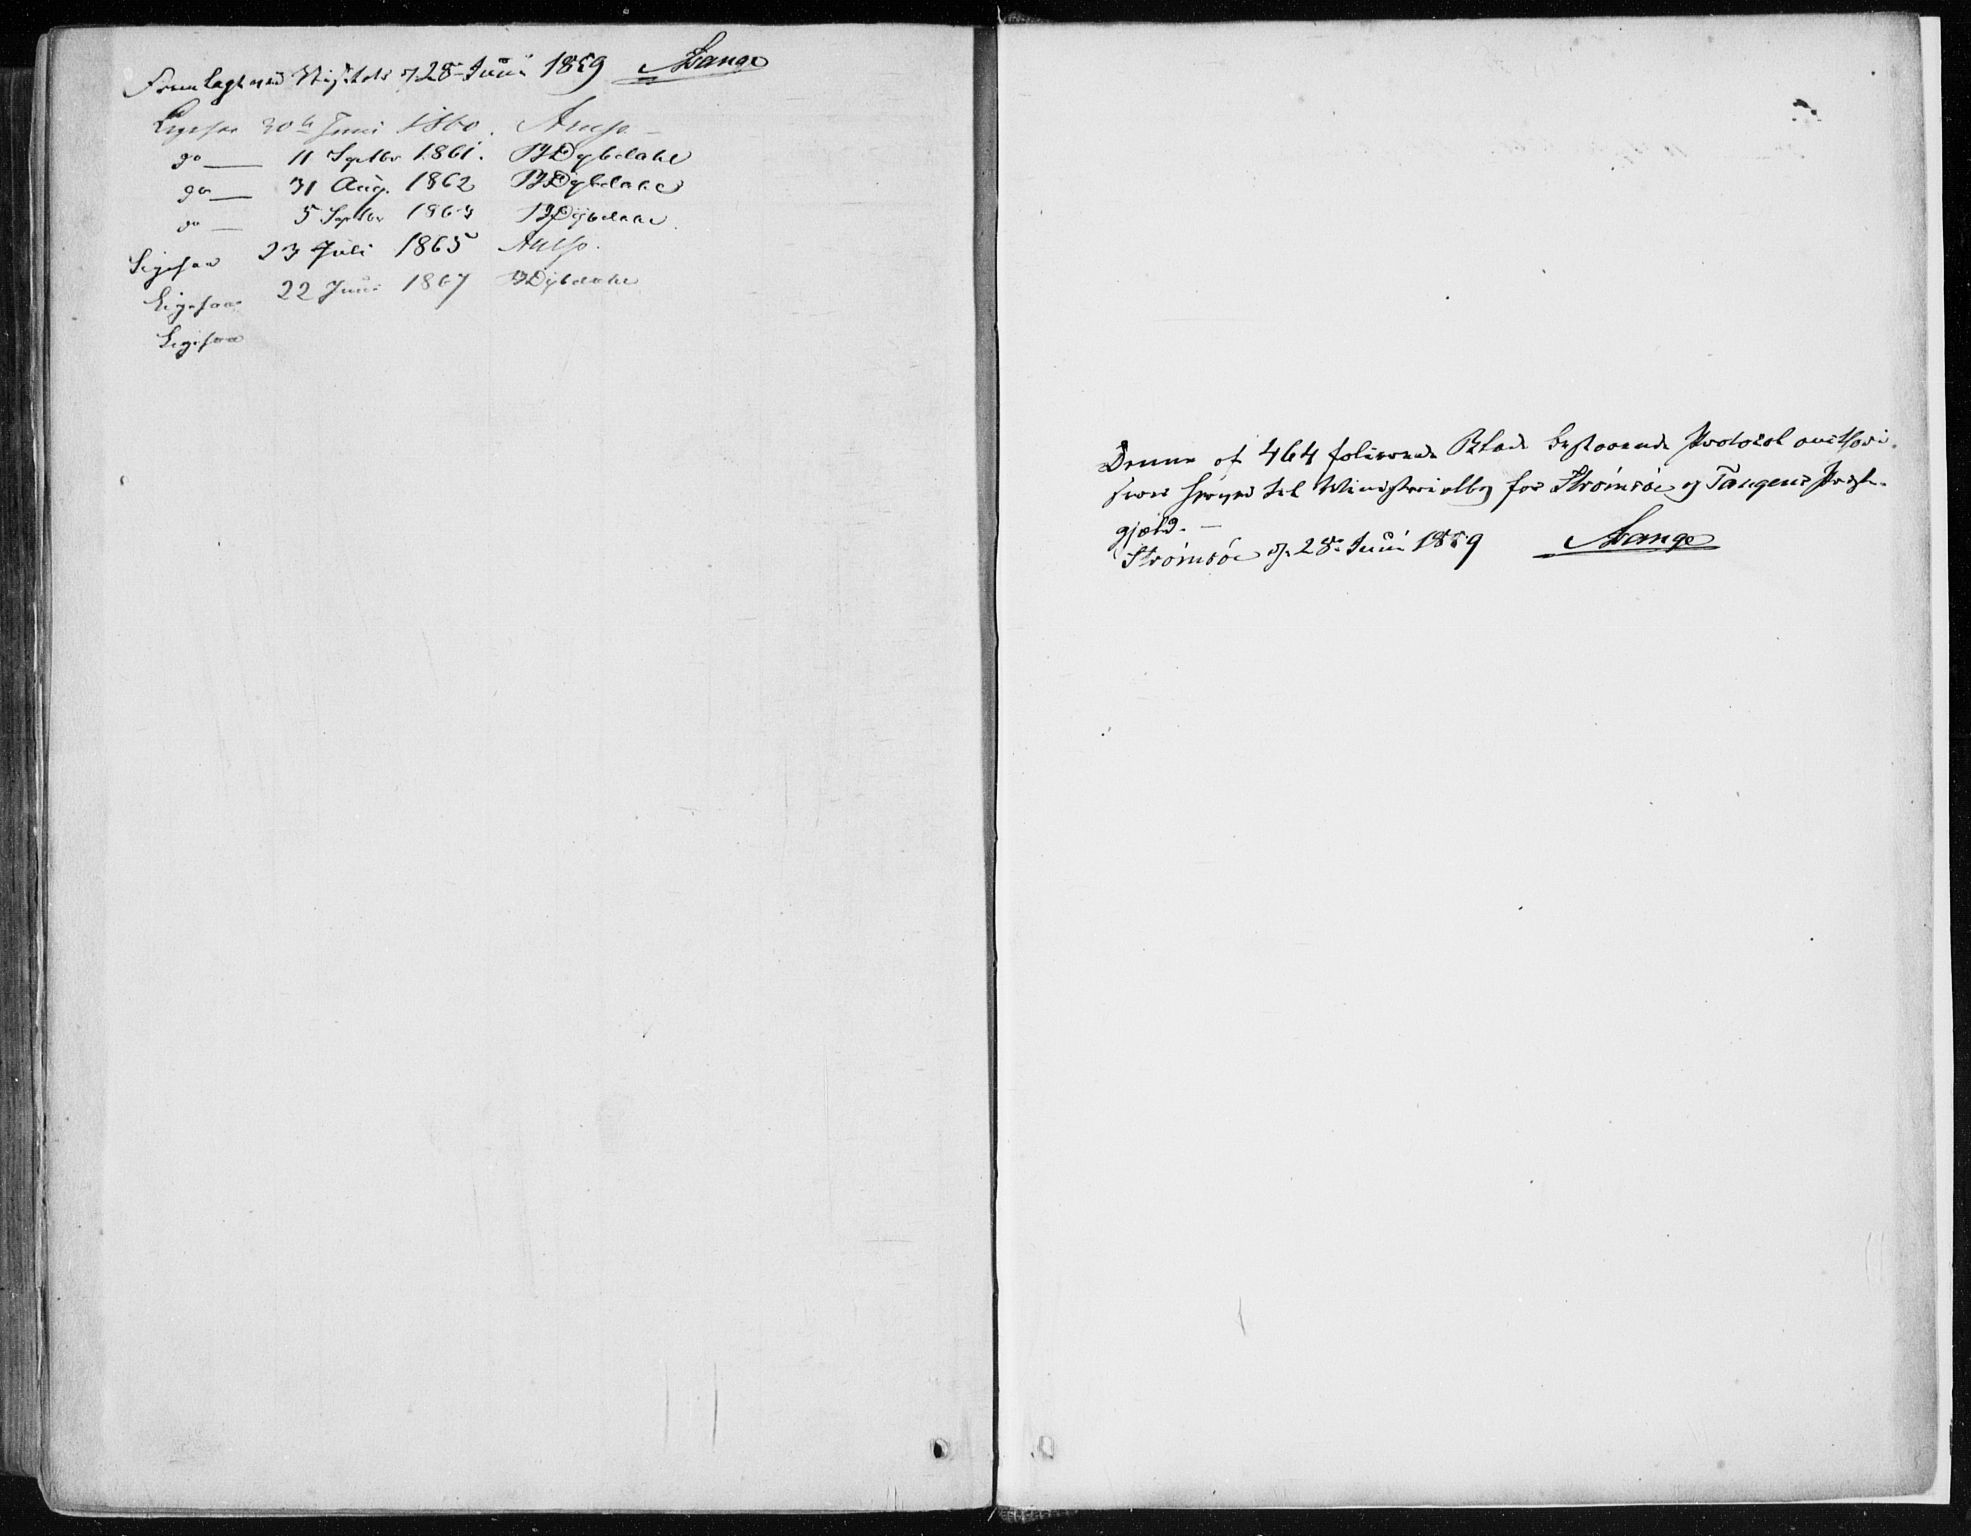 Fremlagt ved Visitats d. 28 Juni 1859 Lange
Ligesaa 30te Juni 1860.
do — 11 Septbr 1861. BDybdahl
do — 31 Aug. 1862 BDybdahl
do — 5 Septbr 1863 BDybdahl
Ligesaa 23 Juli 1865
Ligesaa 22 Juni 1867 BDybdahl
Ligesaa
Denne af 464 folierede Blade bestaaende Protocol authori-
seres herved til Ministerialbog for Strømsøe og Tangens Præste-
gjæld. —
Strømsøe d. 28 Juni 1859 Lange